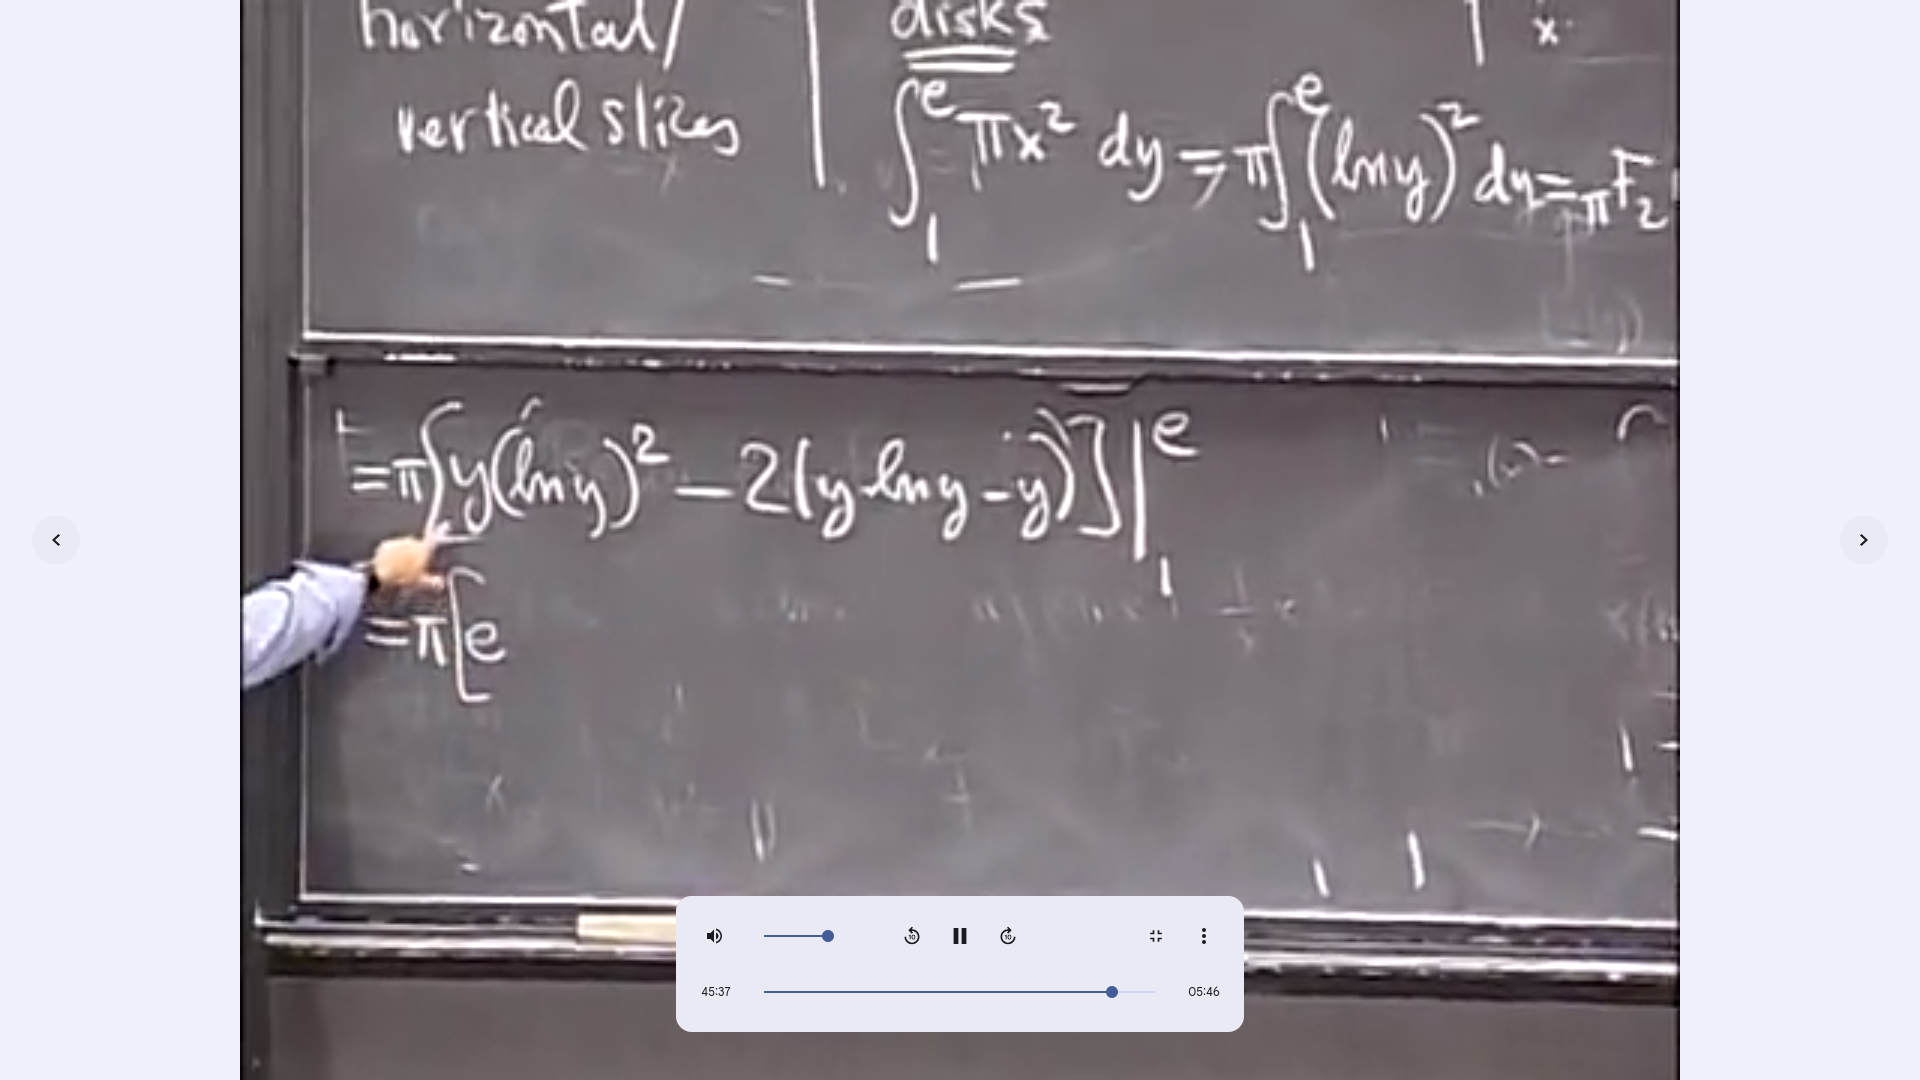 horizontal/
vertical slices
disks
x
∫₁ᵉ πx² dy = π∫₁ᵉ (ln y)² dy = πF₂
= π[y(ln y)² − 2(y ln y − y)]|₁ᵉ
= π[e
45:37
05:46